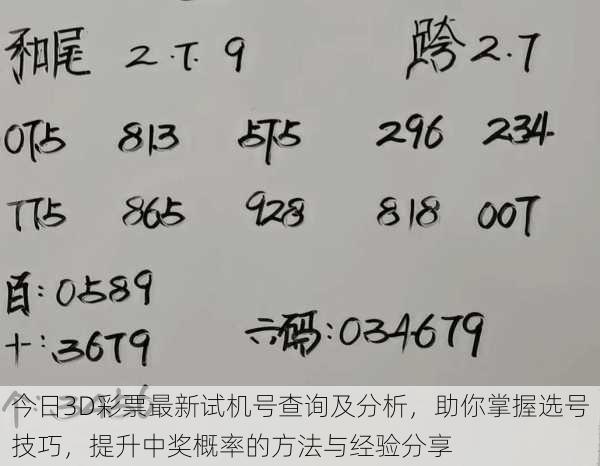 和尾 2.7.9 跨2.7
075 813 575 296 234.
775 865 928 818 007
百:0589
十:3679 六码:034679
个:
今日3D彩票最新试机号查询及分析，助你掌握选号
技巧，提升中奖概率的方法与经验分享